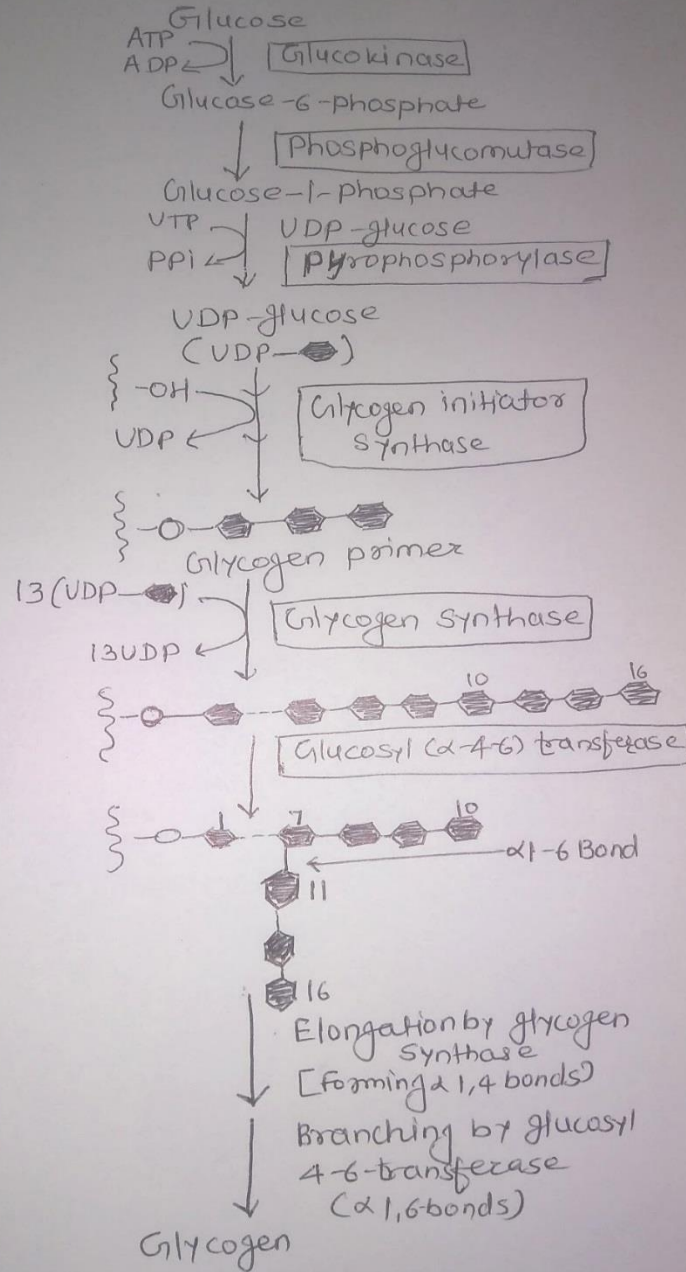 Glucose
ATP
ADP
Glucokinase
Glucose-6-phosphate
Phosphoglucomutase
Glucose-1-phosphate
UTP
UDP-glucose
PPi
Pyrophosphorylase
UDP-glucose
(UDP—)
-OH
Glycogen initiator
synthase
UDP
Glycogen primer
13(UDP—)
Glycogen synthase
13UDP
10
16
Glucosyl (α-4-6) transferase
1
7
10
α1-6 Bond
11
16
Elongation by glycogen
synthase
[Forming α 1,4 bonds)
Branching by glucosyl
4-6-transferase
(α 1,6-bonds)
Glycogen